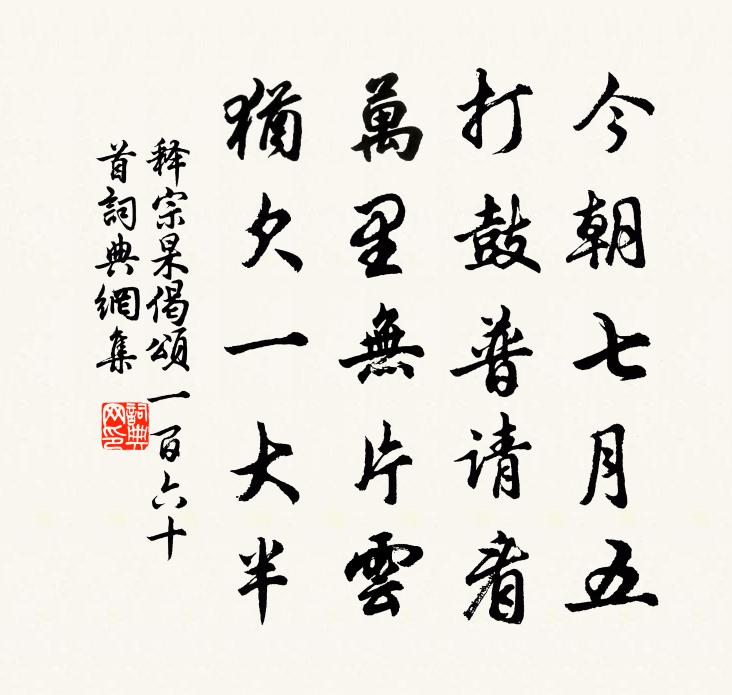 今朝七月五
打鼓普请看
萬里無片雲
猶欠一大半
释宗杲偈頌一百六十
首詞典網集
詞典网印